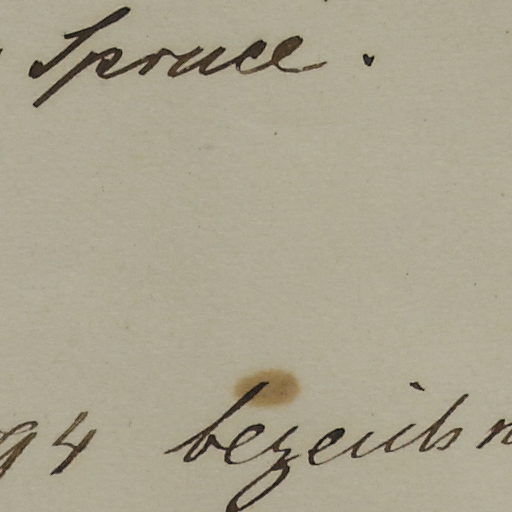 Spruce.
94 bezeichn